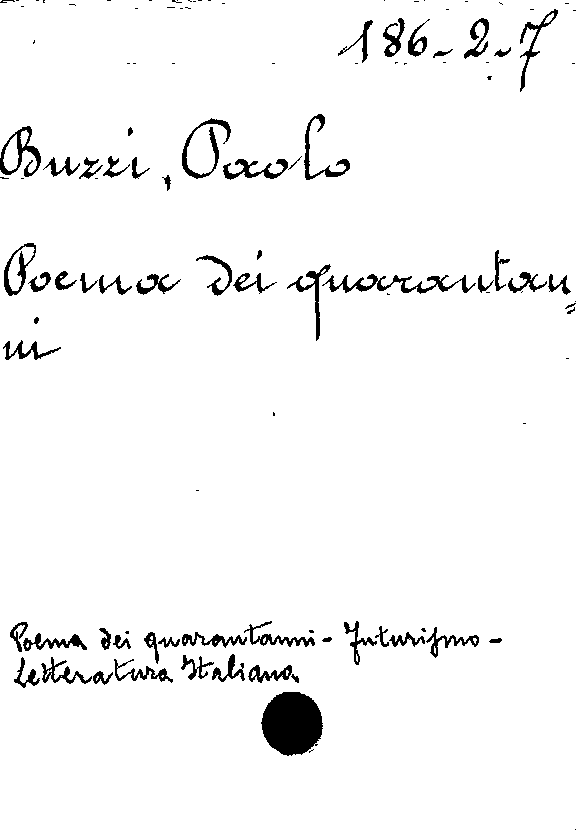 186-2-7
Buzzi, Paolo
Poema dei quarantan=
ni
Poema dei quarantanni - Futurismo -
Letteratura Italiana